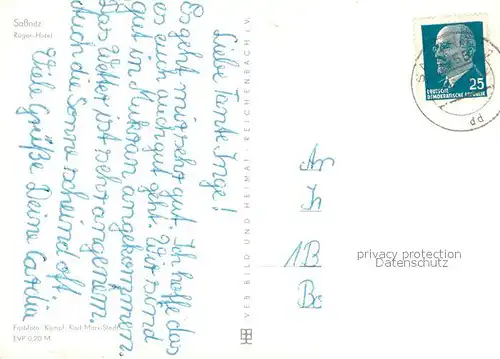 Saßnitz
Rügen-Hotel
Liebe Tante Inge!
Es geht mir sehr gut. Ich hoffe das
es euch auch gut geht. Wir sind
gut in Mukran angekommen.
Das Wetter ist sehr angenem.
Auch die Sonne scheind oft.
Viele Grüße Deine Carola
Farbfoto: Kämpf, Karl-Marx-Stadt
EVP 0,20 M
VEB BILD UND HEIMAT · REICHENBACH i. V.
25
DEUTSCHE
DEMOKRATISCHE REPUBLIK
dd
An
In
1B
Be
privacy protection
Datenschutz